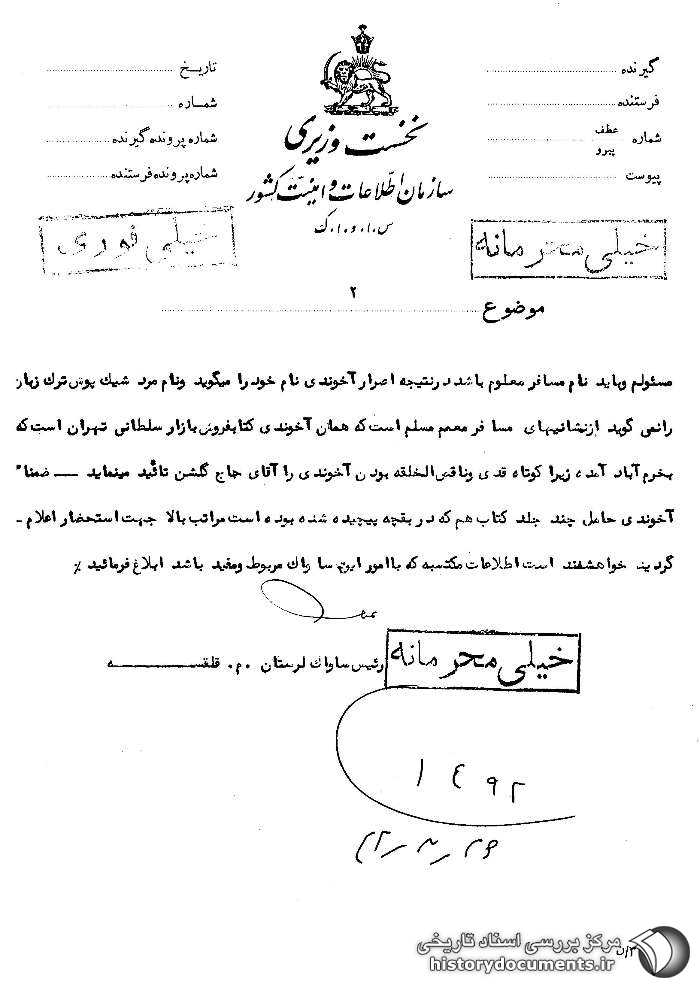 گیرنده
فرستنده
شماره عطف پیرو
پیوست
نخست وزیری
سازمان اطلاعات و امنیت کشور
س.ا.و.ا.ک
تاریخ
شماره
شماره پرونده گیرنده
شماره پرونده فرستنده
خیلی محرمانه
خیلی فوری
۲
موضوع
مسئولم وباید نام مسافر معلوم باشد درنتیجه اصرار آخوندی نام خود را میگوید ونام مرد شیک پوش ترک زبان
رانمی گوید ازنشانیهای مسافر معمم مسلم است که همان آخوندی کتابفروش بازار سلطانی تهران است که
بخرم آباد آمده زیرا کوتاه قدی وناقص الخلقه بودن آخوندی را آقای حاج گلشن تائید مینماید ـــ ضمناً
آخوندی حامل چند جلد کتاب هم که در بقچه پیچیده شده بوده است مراتب بالا جهت استحضار اعلام ـ
گردید خواهشمند است اطلاعات مکتسبه که باامور این ساواک مربوط ومفید باشد ابلاغ فرمائید ٪
رئیس ساواک لرستان .م. قلقسه
خیلی محرمانه
۱۴۹۲
مرکز بررسی اسناد تاریخی
historydocuments.ir